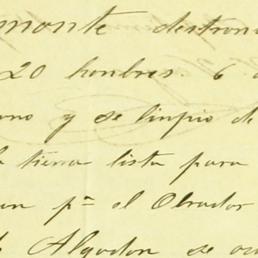 monte destron
20 hombres 6
no y se limpio de
tierra lista para
pª el Obrador
Algodon se